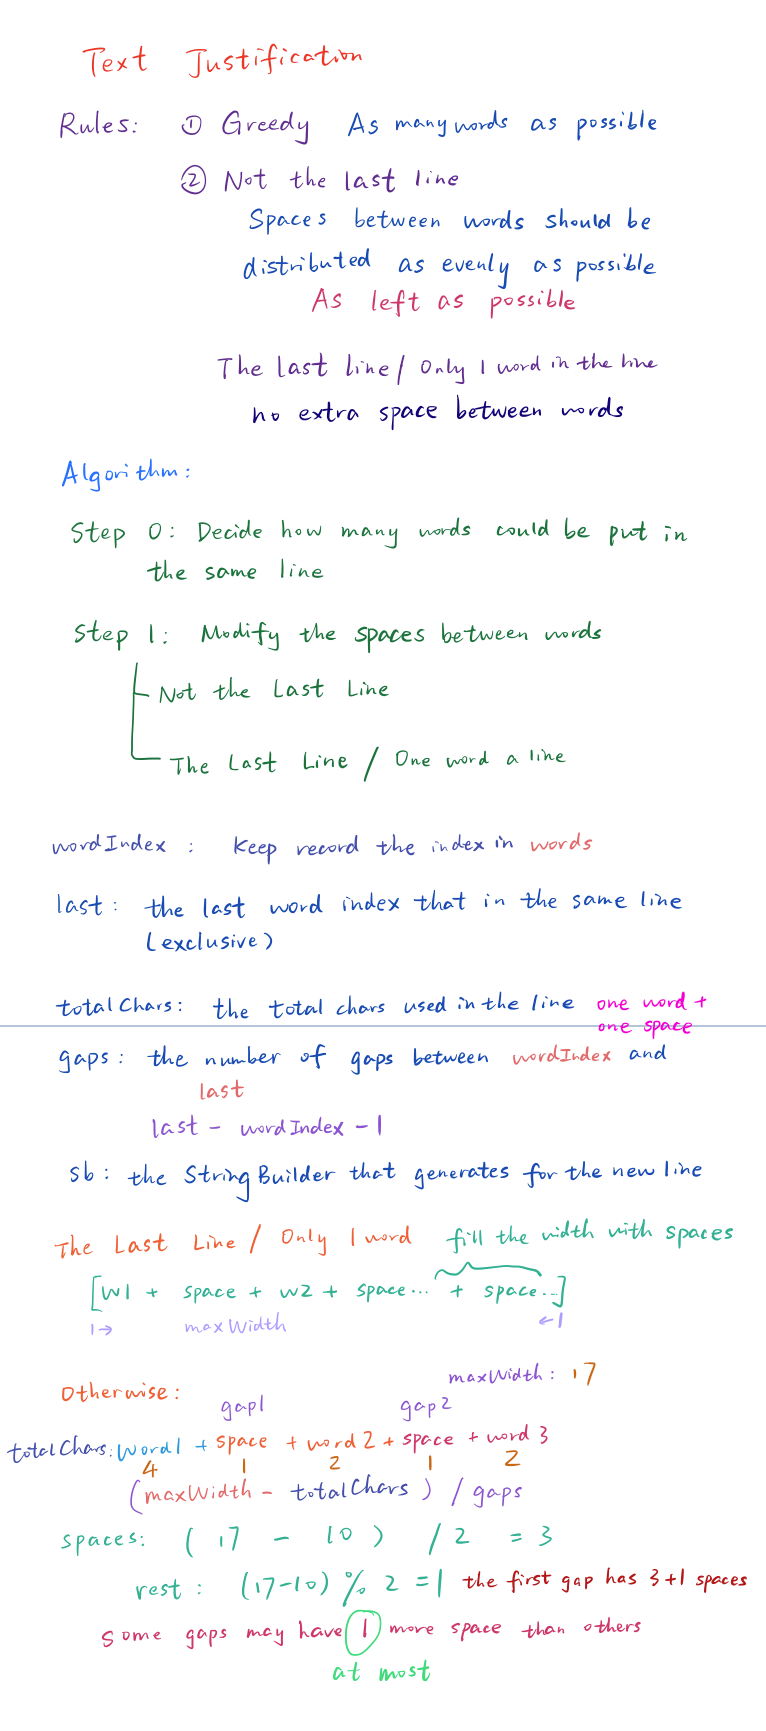 Text Justification
Rules: ① Greedy As many words as possible
② Not the last line
Spaces between words should be
distributed as evenly as possible
As left as possible
The last line / Only 1 word in the line
no extra space between words
Algorithm:
Step 0: Decide how many words could be put in
the same line
Step 1: Modify the spaces between words
Not the Last Line
The Last Line / One word a line
wordIndex : Keep record the index in words
last: the last word index that in the same line
(exclusive)
totalChars: the total chars used in the line one word +
one space
gaps: the number of gaps between wordIndex and
last
last - wordIndex - 1
sb: the StringBuilder that generates for the new line
The Last Line / Only 1 word fill the width with spaces
[W1 + space + W2 + space... + space...]
1→ maxWidth ←1
maxWidth: 17
Otherwise:
gap1 gap2
totalChars: word1 + space + word2 + space + word3
4 1 2 1 2
(maxWidth - totalChars) / gaps
spaces: (17 - 10) / 2 = 3
rest: (17-10) % 2 = 1 the first gap has 3+1 spaces
Some gaps may have 1 more space than others
at most